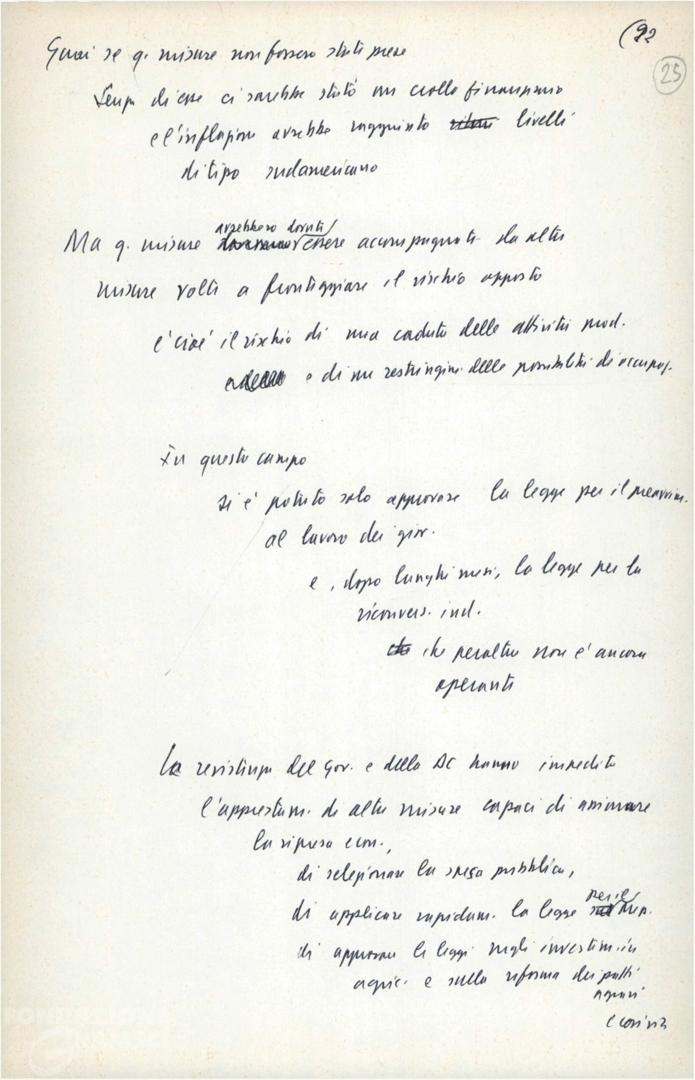 (92
25
Guai se q. misure non fossero state prese
Senza di esse ci sarebbe stato un crollo finanziario
e l'inflazione avrebbe raggiunto livelli
di tipo sudamericano
avrebbero dovuto
Ma q. misure essere accompagnate da altre
misure volte a fronteggiare il rischio opposto
e cioè il rischio di una caduta delle attività prod.
e di un restringim. delle possibilità di occupaz.
In questo campo
si è potuto solo approvare la legge per il preavviam.
al lavoro dei giov.
e, dopo lunghi mesi, la legge per la
riconvers. ind.
che peraltro non è ancora
operante
La resistenza del Gov. e della DC hanno impedito
l'apprestam. di altre misure capaci di animare
la ripresa econ.,
di selezionare la spesa pubblica,
per il
di applicare rapidam. la legge
di approvare le leggi sugli investim. in
agric. e sulla riforma dei patti
agrari
e così via